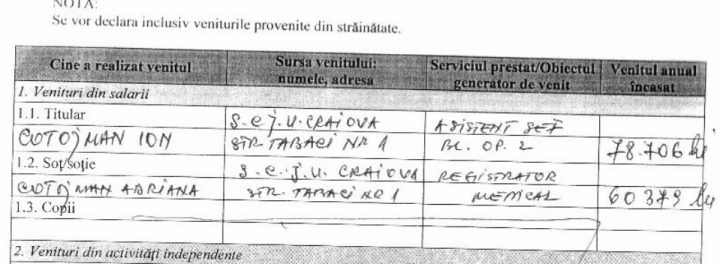 NOTĂ:
Se vor declara inclusiv veniturile provenite din străinătate.
Cine a realizat venitul | Sursa venitului: numele, adresa | Serviciul prestat/Obiectul generator de venit | Venitul anual încasat
1. Venituri din salarii
1.1. Titular | S.C.J.U. CRAIOVA | ASISTENT ȘEF
COTOJMAN ION | STR. TABACI NR 1 | BL. OP. 2 | 78.706 lei
1.2. Soț/soție | S.C.J.U. CRAIOVA | REGISTRATOR
COTOJMAN ADRIANA | STR. TABACI NR 1 | MEDICAL | 60 379 lei
1.3. Copii
2. Venituri din activități independente